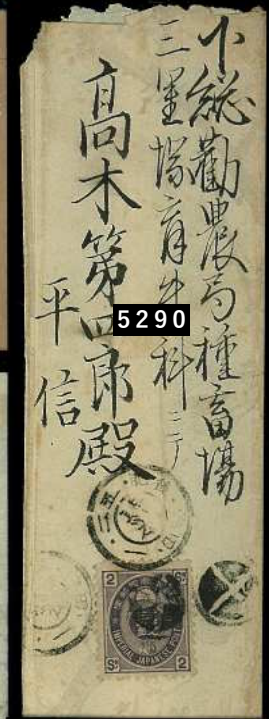 下総勸農局種畜場
三里塚育牛科ニテ
高木第四郎殿
平信
5290
2 Sn
IMPERIAL JAPANESE POST
Sn 2